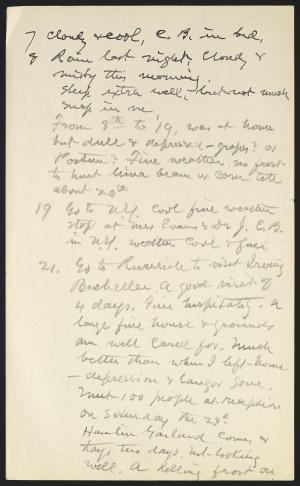 7 Cloudy & cool, C. B. in bed,
8 Rain last night, Cloudy &
misty this morning.
sleep extra well, but not much
snap in me
From 8th to 19, was at home
but dull & depressed - grapes? or
Postum? Fine weather, no frost
to hurt lima beans or corn till
about 20th
19 Go to N.Y. Cool fine weather
stop at Mrs Evans & Dr J. C. B.
in N.Y. weather cool & fair
21. Go to Riverside to visit Irving
Bacheller. A good visit of
4 days. Fine hospitality. A
large fine house & grounds
am well cared for. Much
better than when I left home
- depression & langor gone.
Meet 100 people at reception
on Saturday the 23d
Hamlin Garland comes &
stays two days, not looking
well. A killing frost on